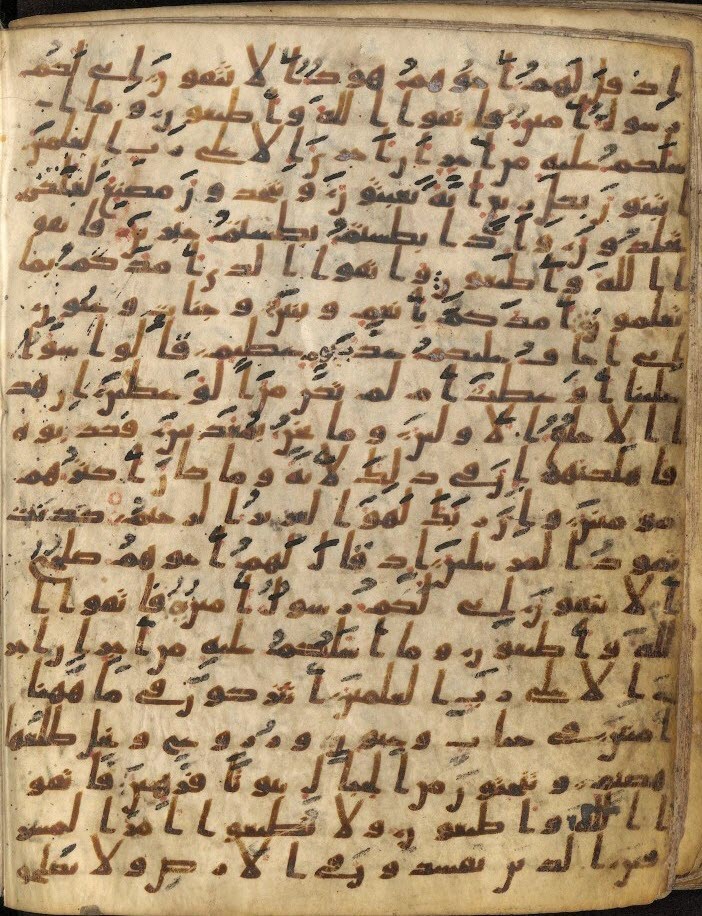 اذ قال لهم اخوهم هود الا تتقون اني لكم
رسول امين فاتقوا الله واطيعون وما ا
سلكم عليه من اجر ان اجري الا على رب العلمين
اتبنون بكل ريع اية تعبثون وتتخذون مصنع لعلكم
تخلدون واذا بطشتم بطشتم جبرين فاتقو
ا الله واطيعون واتقوا الذي امدكم بما
تعلمون امدكم بانعم وبنين وجنت وعيون
اني اخاف عليكم عذاب يوم عظيم قالوا سوا
علينا اوعظت ام لم تكن من الوعظين ان هذ
ا الا خلق الاولين وما نحن بمعذبين فكذبوه
فاهلكنهم ان في ذلك لاية وما كان اكثرهم
مومنين وان ربك لهو العزيز الرحيم كذبت
ثمود المرسلين اذ قال لهم اخوهم صلح
الا تتقون اني لكم رسول امين فاتقوا ا
لله واطيعون وما اسلكم عليه من اجر ان اجر
ي الا على رب العلمين اتتركون في ما ههنا
امنين في جنات وعيون وزروع ونخل طلعها
هضيم وتنحتون من الجبال بيوتا فرهين فاتقو
ا الله واطيعون ولا تطيعوا امر المسر
فين الذين يفسدون في الارض ولا يصلحو